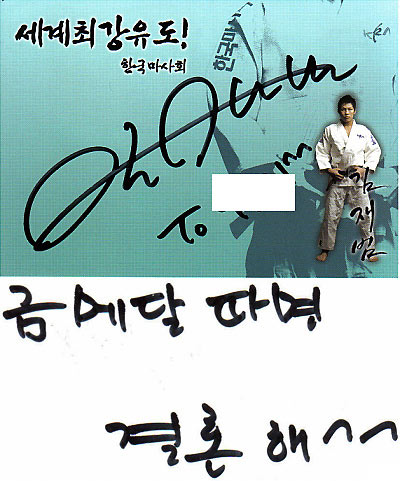 세계최강유도!
한국마사회
한국마사
To
김재범
금메달 따명
결혼 해 ^^